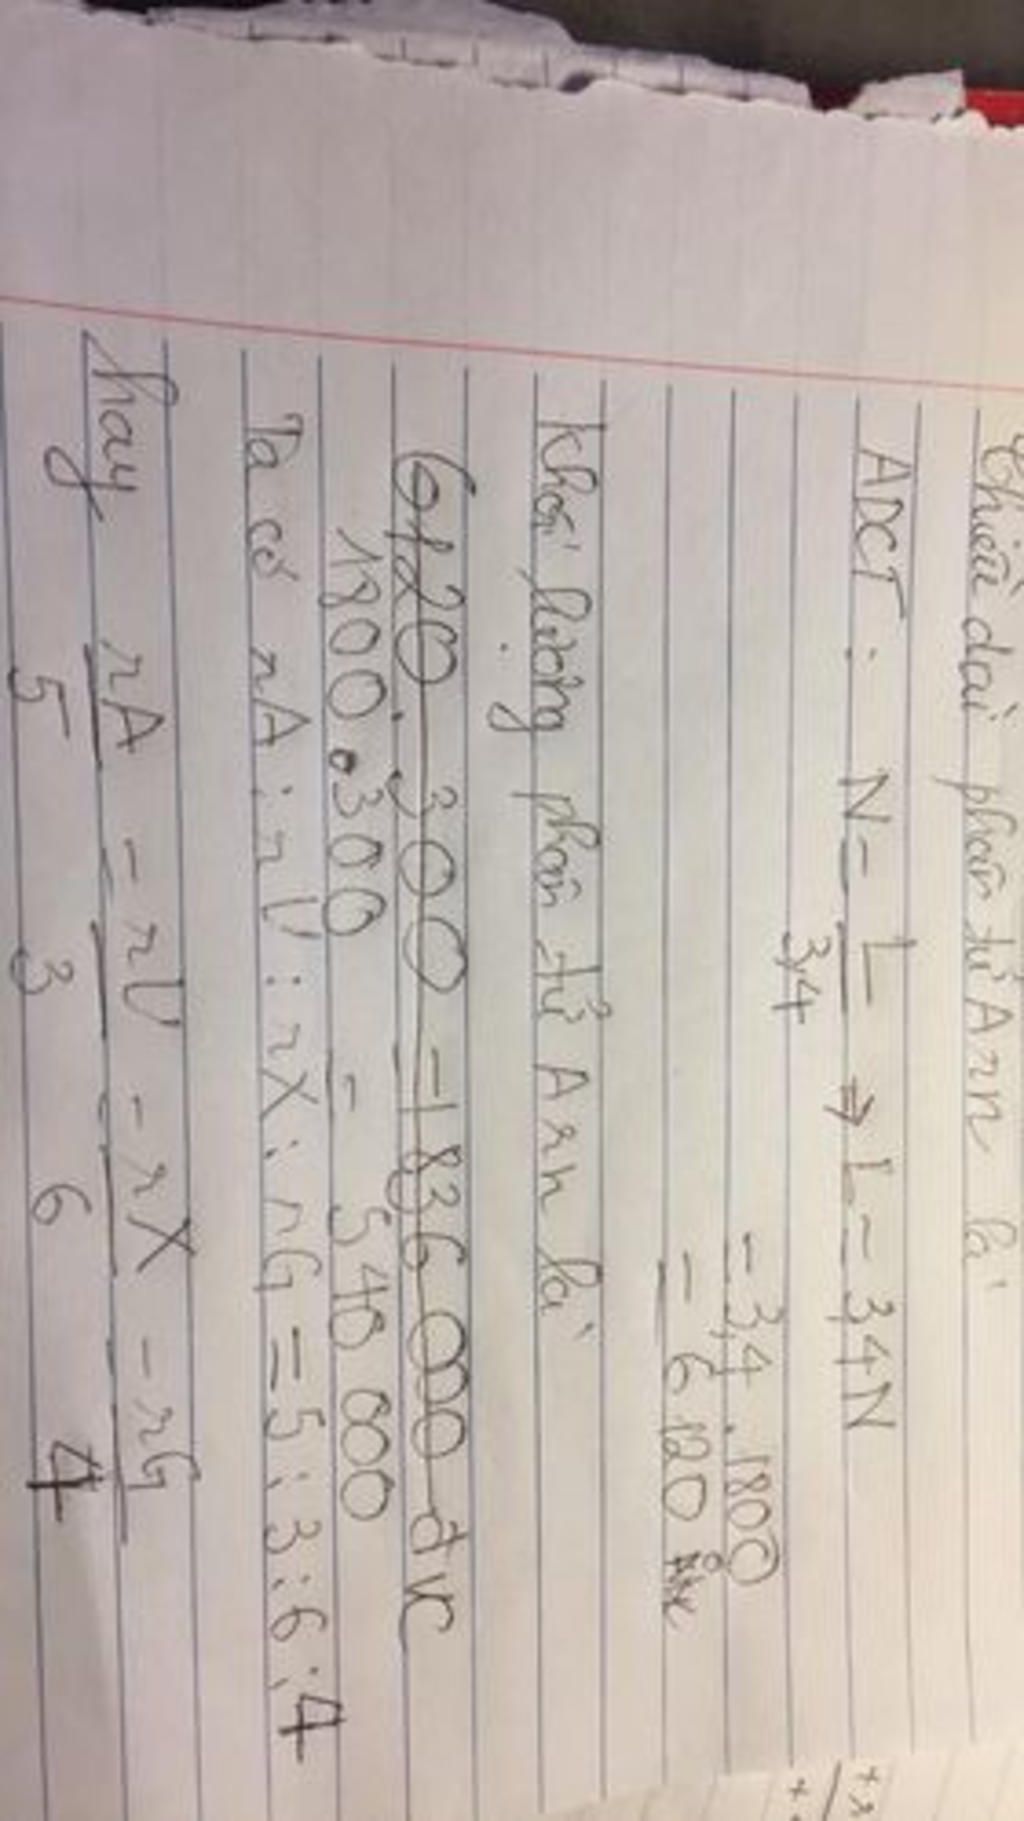 Chiều dài phân tử Arn là
ADCT : N = L / 3,4 ⇒ L = 3,4N
= 3,4 . 1800
= 6120 Å
Khối lượng phân tử Arn là
6120 . 300 = 1836 000 đvc
1800 . 300 = 540 000
Ta có rA : rU : rX : rG = 5 : 3 : 6 : 4
hay rA / 5 = rU / 3 = rX / 6 = rG / 4